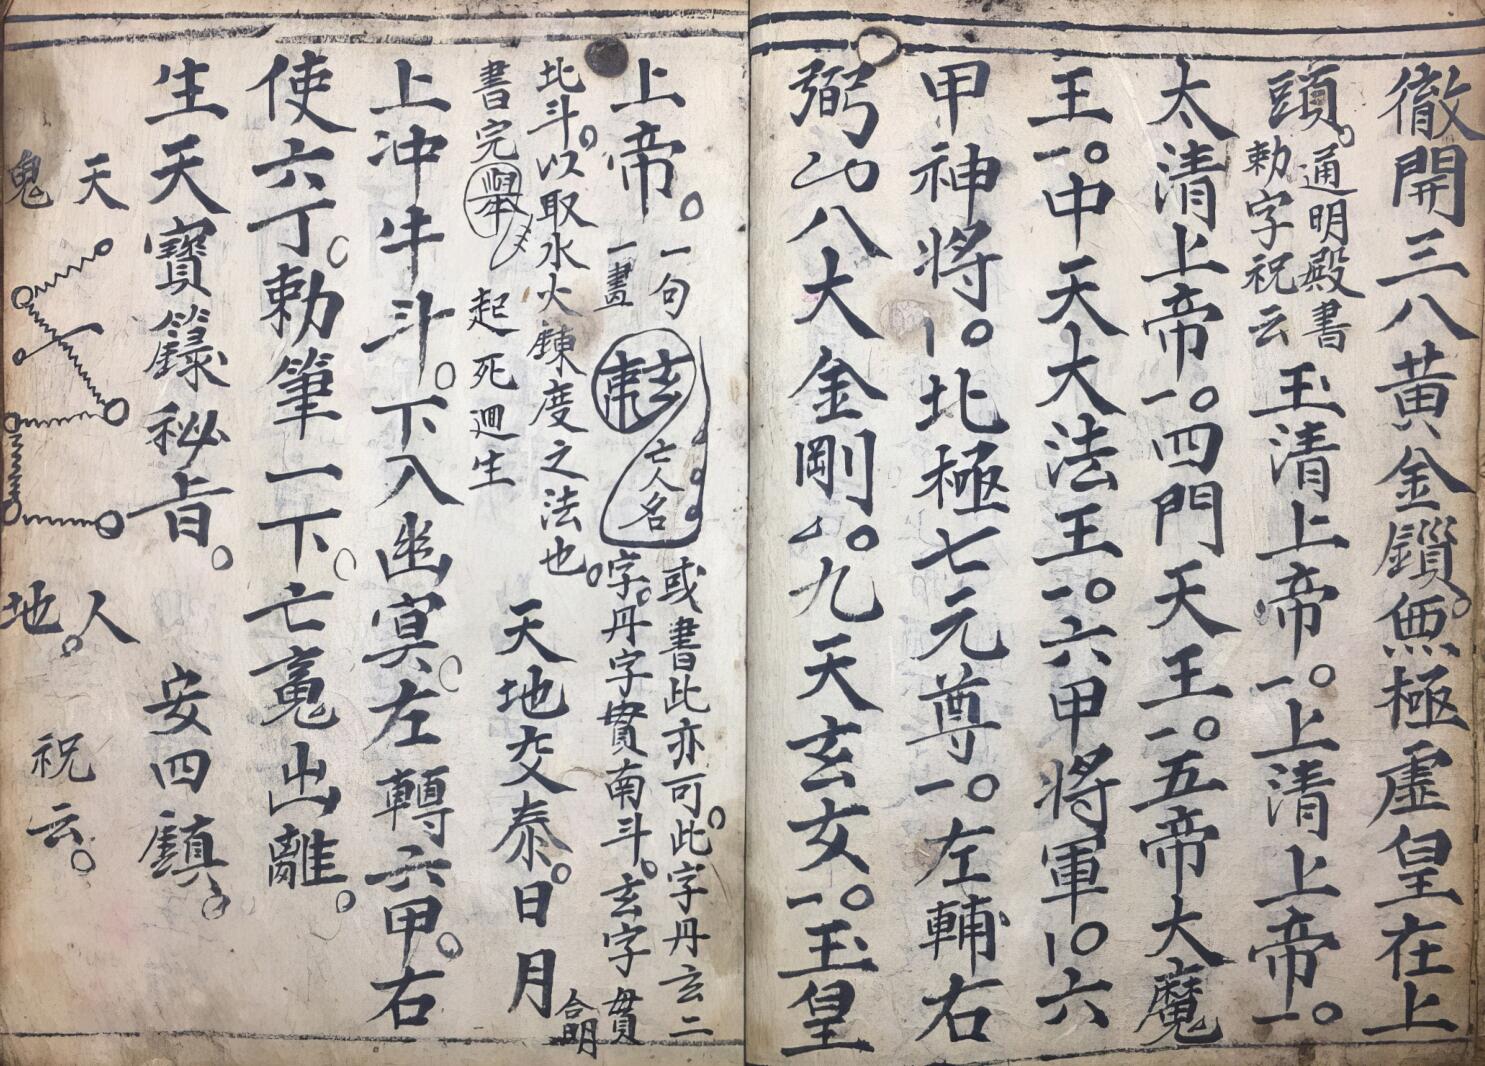 徹開三八黃金鎖。無極虛皇在上
頭。通明殿書
勅字祝云玉清上帝。一上清上帝。一
太清上帝一。四門天王一。五帝大魔
王一。中天大法王一。六甲將軍一。六
甲神將一。北極七元尊一。左輔右
弼一。八大金剛一。九天玄女一。玉皇
上帝。一句
一畫
亡人名
或書此亦可。此字丹玄二
字。丹字貫南斗。玄字貫
北斗。以取水火鍊度之法也。
書完
起死迴生
天地交泰。日月
合明
上冲牛斗。下入幽冥。左轉六甲。右
使六丁。勅筆一下。亡䰟出離。
生天寶籙秘旨。安四鎮。
天
鬼
人
地。
祝云。